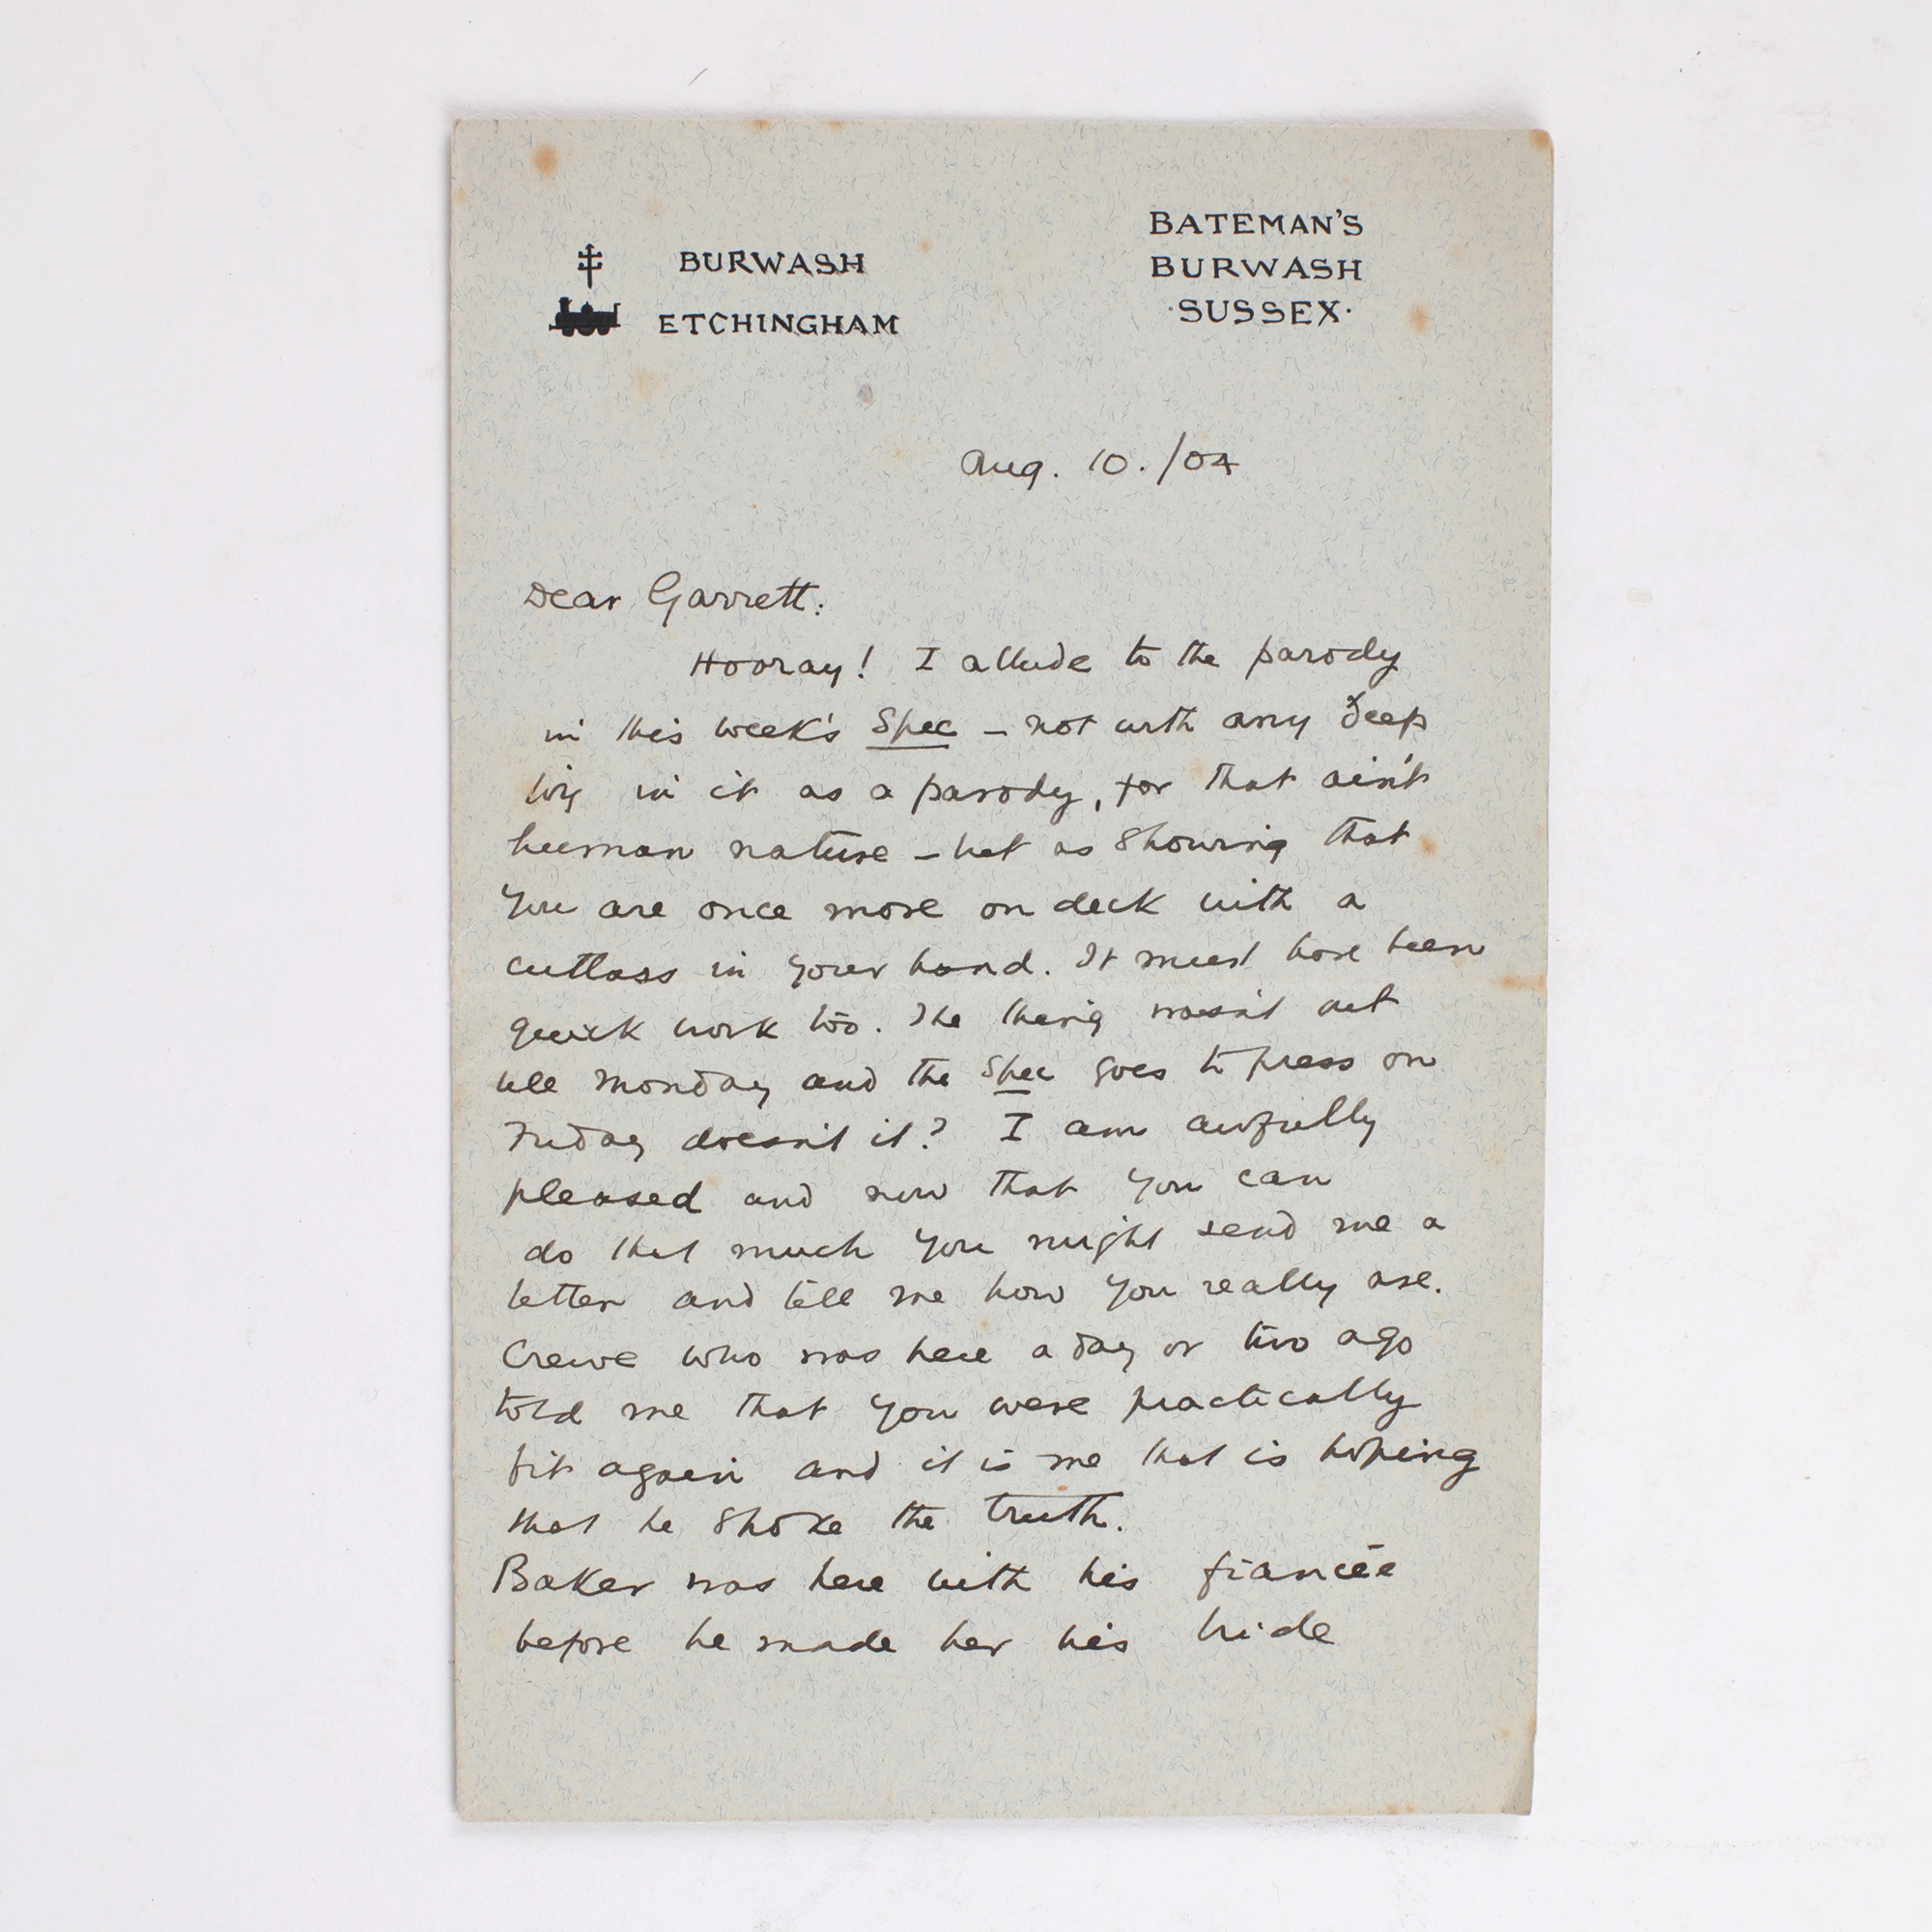 BURWASH
ETCHINGHAM
BATEMAN'S
BURWASH
·SUSSEX·
Aug. 10./04
Dear Garrett:
Hooray! I allude to the parody
in this week's Spec – not with any deep
joy in it as a parody, for that ain't
human nature – but as showing that
you are once more on deck with a
cutlass in your hand. It must have been
quick work too. The thing wasn't out
till Monday and the Spec goes to press on
Friday doesn't it? I am awfully
pleased and now that you can
do that much you might send me a
letter and tell me how you really are.
Crewe who was here a day or two ago
told me that you were practically
fit again and it is me that is hoping
that he spoke the truth.
Baker was here with his fiancée
before he made her his bride